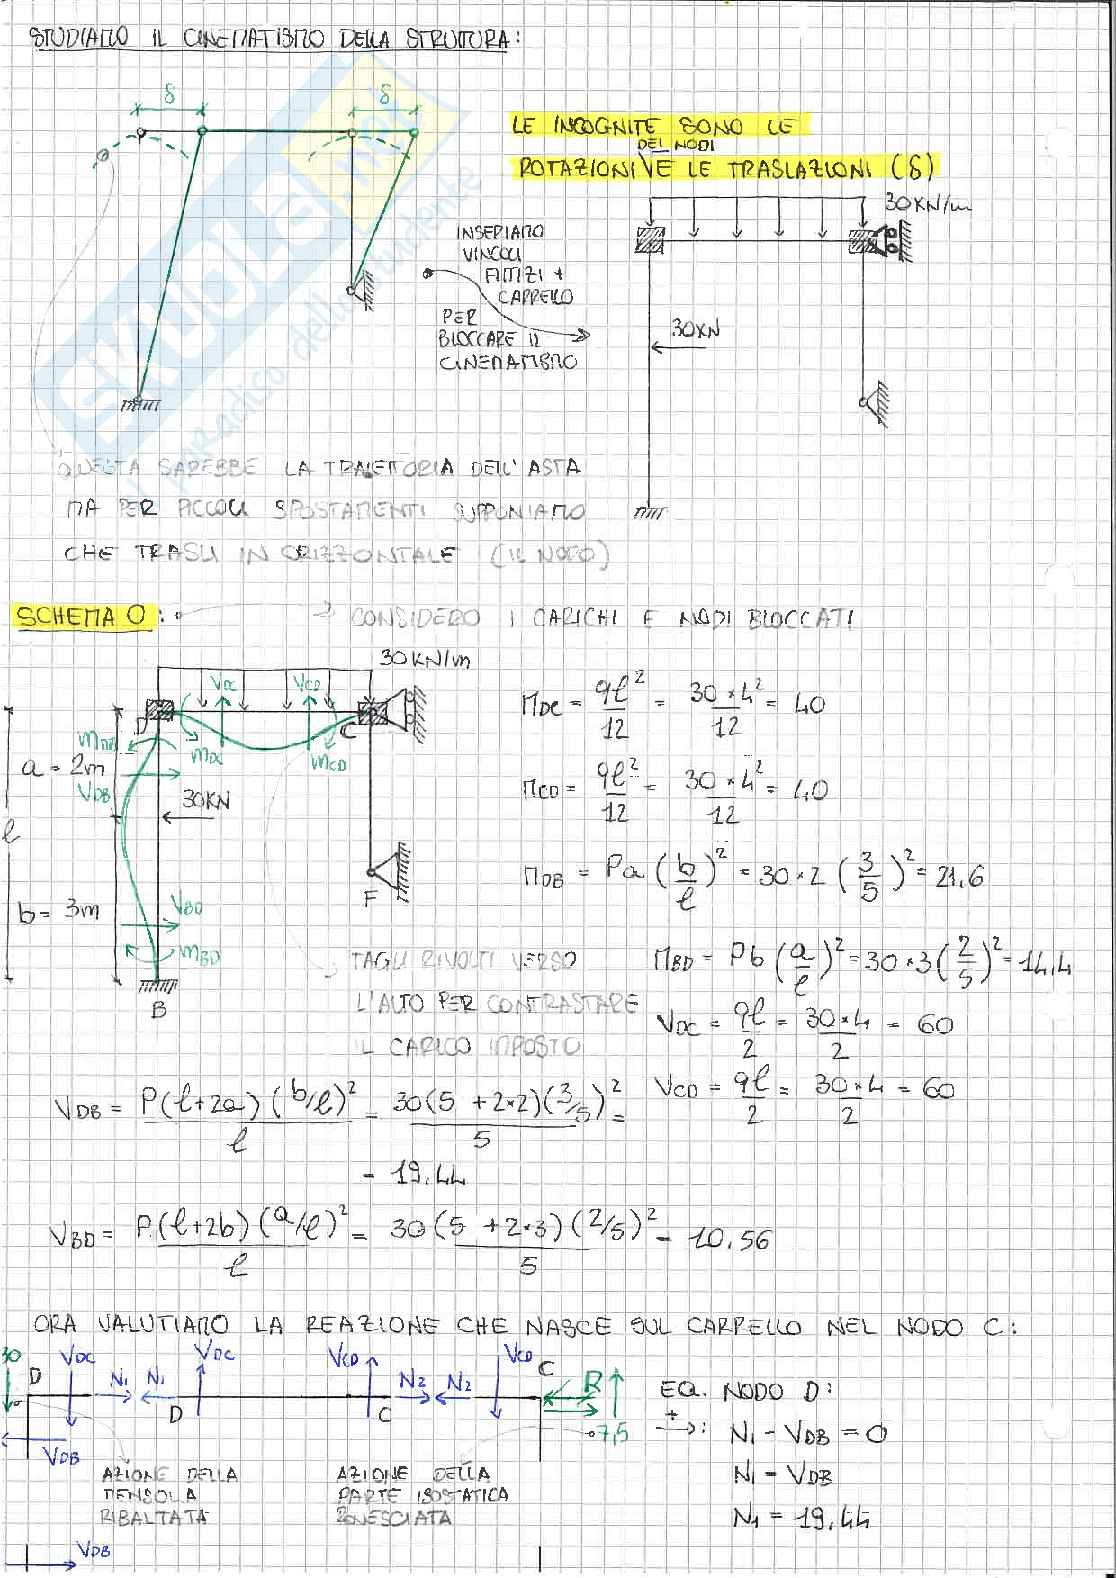 STUDIAMO IL CINEMATISMO DELLA STRUTTURA:
δ δ
LE INCOGNITE SONO LE
DEI NODI
ROTAZIONI V E LE TRASLAZIONI (δ)
30KN/m
INSERIAMO
VINCOLI
FITTIZI +
CARRELLO
PER
BLOCCARE IL
CINEMATISMO
30KN
SKUOLA.net
il paradiso dello studente
QUESTA SAREBBE LA TRAIETTORIA DELL'ASTA
MA PER PICCOLI SPOSTAMENTI SUPPONIAMO
CHE TRASLI IN ORIZZONTALE (IL NODO)
SCHEMA 0: → CONSIDERO I CARICHI E NODI BLOCCATI
30KN/m
VDC VCD
D C
MDB MDC MCD
a = 2m
VDB
30KN
l
F
b = 3m
VBD
MBD
B
MDC = ql²/12 = 30×4²/12 = 40
MCD = ql²/12 = 30×4²/12 = 40
MDB = Pa (b/l)² = 30×2 (3/5)² = 21,6
MBD = Pb (a/l)² = 30×3 (2/5)² = 14,4
TAGLI RIVOLTI VERSO
L'ALTO PER CONTRASTARE
IL CARICO IMPOSTO
VDC = ql/2 = 30×4/2 = 60
VCD = ql/2 = 30×4/2 = 60
VDB = P(l+2a)(b/l)²/l = 30(5+2×2)(3/5)²/5 =
= 19,44
VBD = P(l+2b)(a/l)²/l = 30(5+2×3)(2/5)²/5 = 10,56
ORA VALUTIAMO LA REAZIONE CHE NASCE SUL CARRELLO NEL NODO C:
30 D VDC N1 N1 VDC VCD N2 N2 VCD C R
D C
7,5
VDB
AZIONE DELLA
MENSOLA
RIBALTATA
AZIONE DELLA
PARTE ISOSTATICA
ROVESCIATA
VDB
EQ. NODO D:
+→: N1 - VDB = 0
N1 - VDB
N1 = 19,44